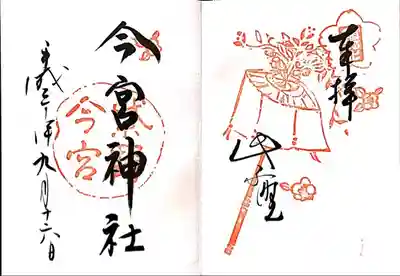 奉拝
今宮神社
今宮
平成三十年九月十六日